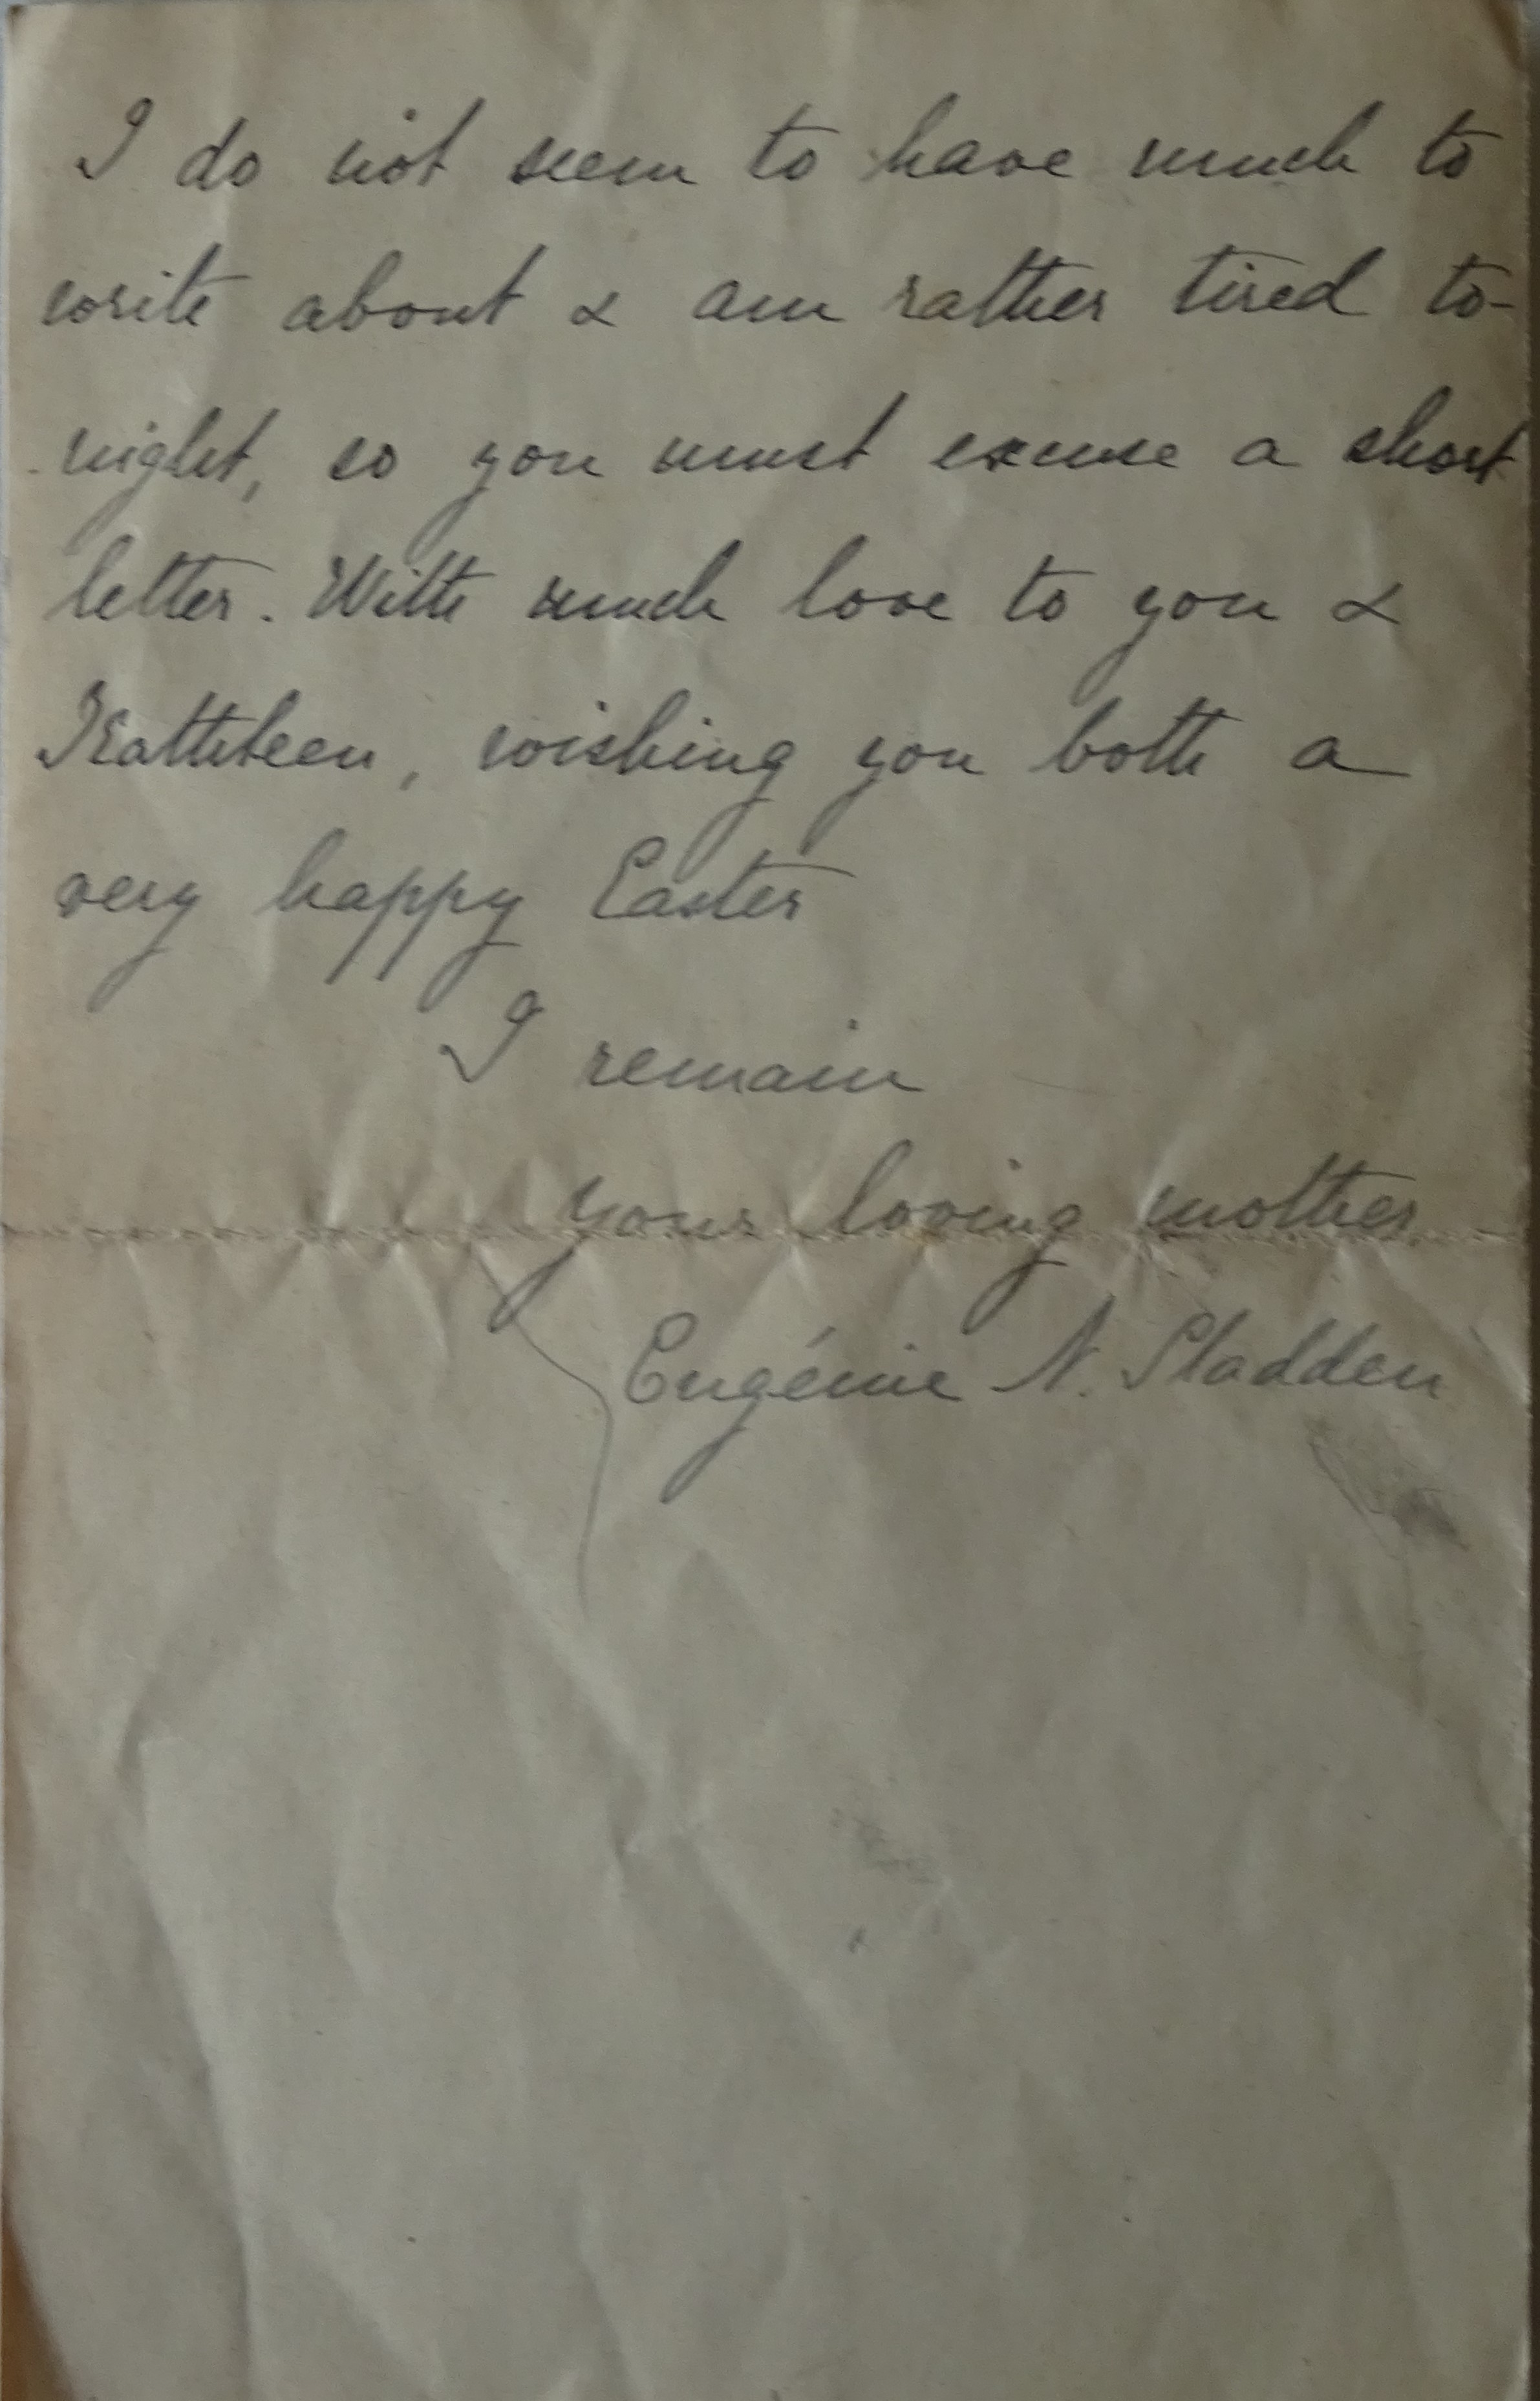 I do not seem to have much to
write about & am rather tired to-
night, so you must excuse a short
letter. With much love to you &
Kathleen, wishing you both a
very happy Easter
I remain
your loving mother
Eugénie N. Sladden